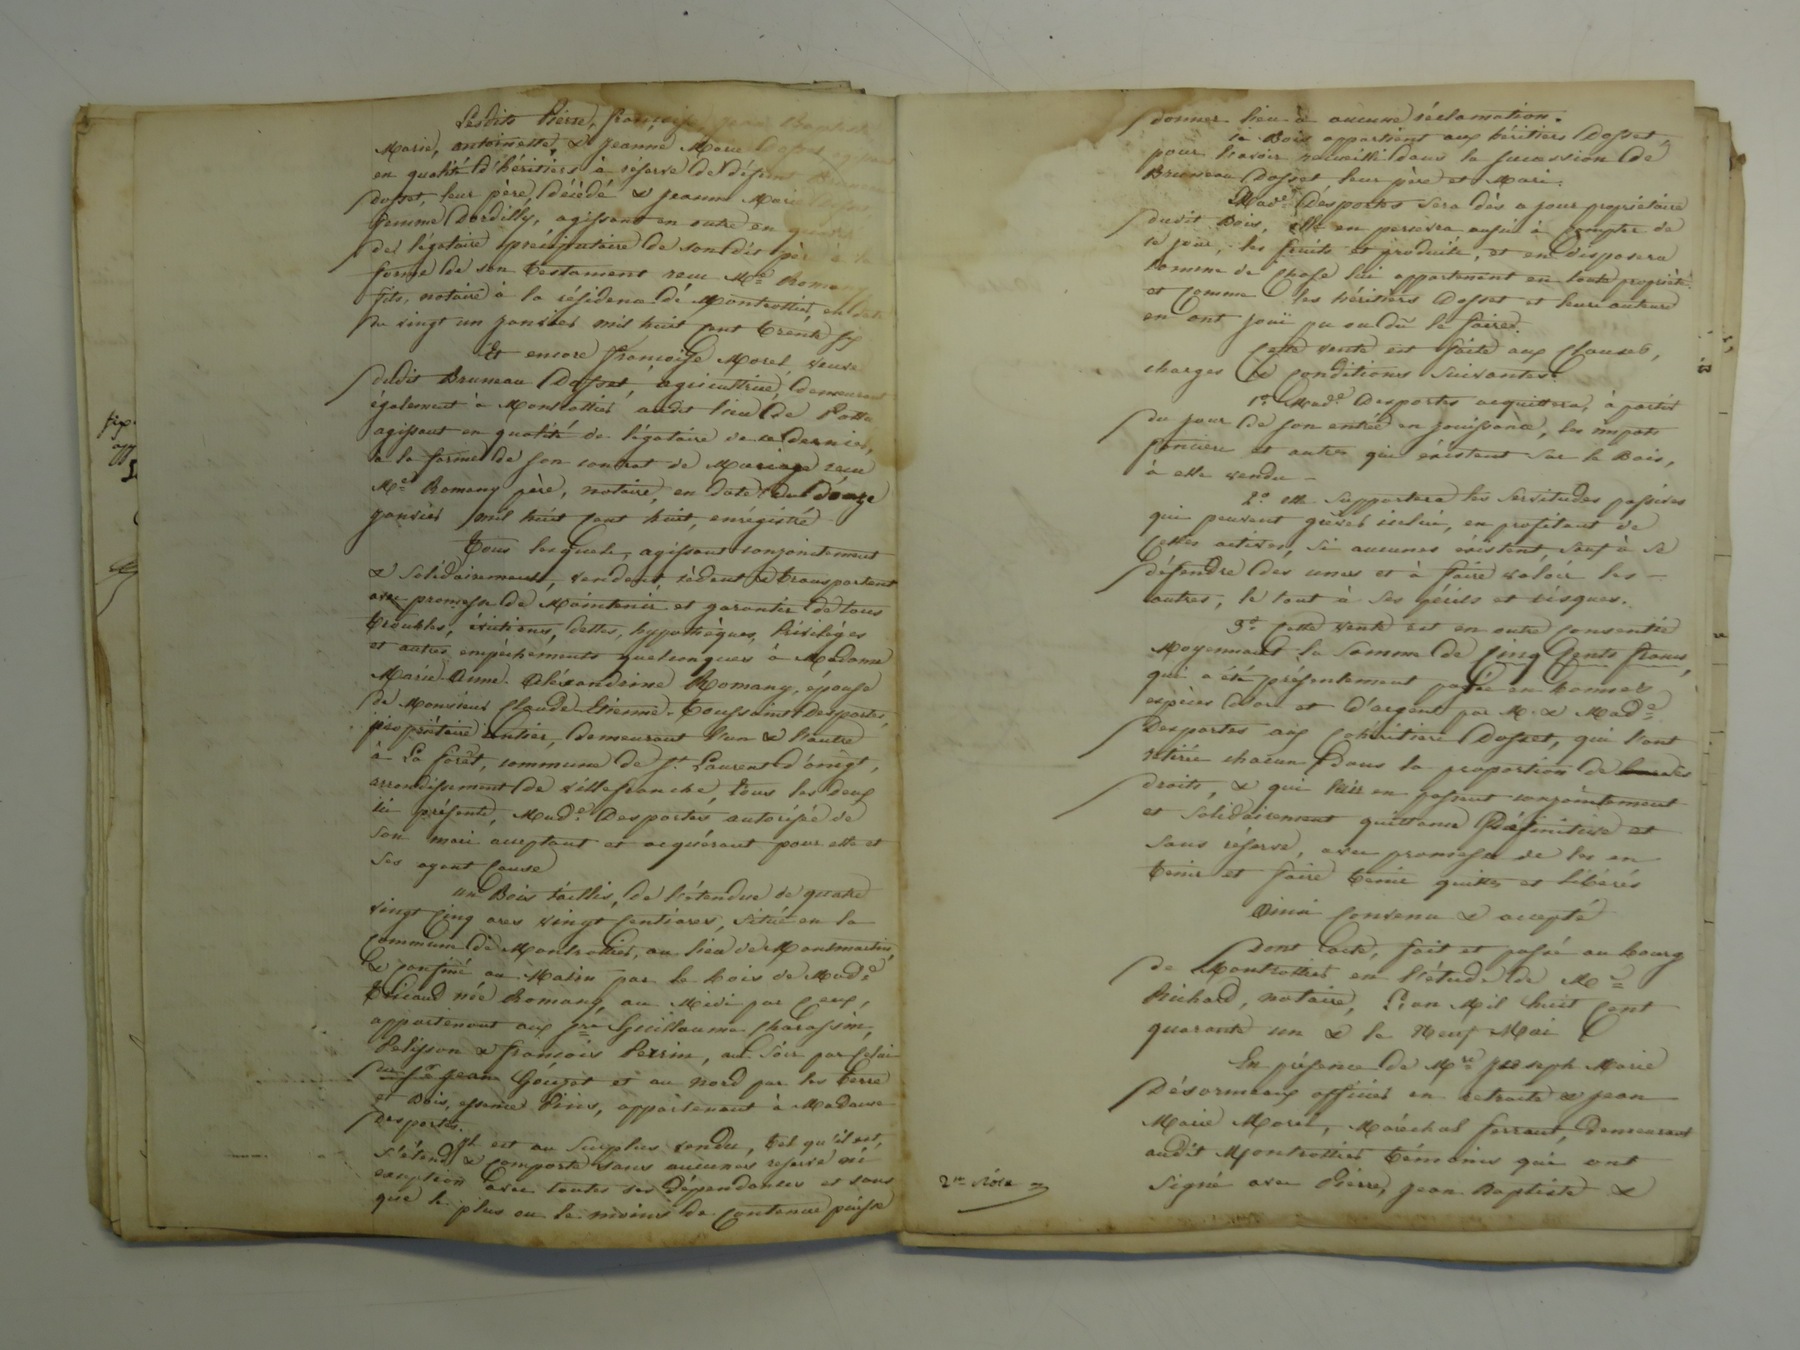 Lesdits Pierre, françoise, Jean Baptiste
Marie, antoinette, & Jeanne Marie Dosset agissant
en qualité d'héritiers à réserve de défunt Bruneau
Dosset, leur père, décédé & Jeanne Marie Dosset
femme Dordilly, agissant en outre en qualité
de légataire préciputaire de son dit père à la
forme de son testament reçu Me. Romany
fils, notaire à la résidence de Montrottier, en date
du vingt un janvier mil huit cent trente six
Et encore françoise Morel, veuve
dudit Bruneau Dosset, agricultrice, demeurant
également à Montrottier audit lieu de
agissant en qualité de légataire de ce dernier,
à la forme de son contrat de Mariage reçu
Me. Romany père, notaire, en date du douze
janvier mil huit cent huit, enrégistré
Tous lesquels, agissant conjointement
& solidairement, vendent cèdent & transportent
avec promesse de Maintenir et garantir de tous
troubles, évictions, dettes, hypothèques, Privilèges
et autres empêchements quelconques à Madame
Marie. Anne. Alexandrine Romany, épouse
de Monsieur Claude-Etienne-Toussaint Desportes,
propriétaire rentier, demeurant l'un & l'autre
à La forêt, commune de St. Laurent d'oingt,
arrondissement de villefranche, tous les deux
ici présents, Made. Desportes autorisée de
son mari acceptant et acquérant pour elle et
ses ayant cause
un Bois taillis, de l'étendue de quatre
vingt cinq ares vingt centiares, situé en la
commune de Montrottier, au lieu de Montmartin,
& confiné au Matin par le bois de Made.
née Romany, au Midi par ceux,
appartenant aux srs. Guillaume Charassin,
Pelisson & françois Perrin, au Soir par celui
du sr. Jean Goujet et au nord par les terre
et Bois, essence Pins, appartenant à Madame
Desportes.
Il est au surplus vendu, tel qu'il est,
s'étend & comporte sans aucunes reserve ni
exception avec toutes ses dépendances et sans
que le plus ou le moins de contenue puisse
donner lieu à aucune réclamation.
Ce Bois appartient aux héritiers Dosset,
pour l'avoir recueilli dans la succession de
Bruneau Dosset leur père et Mari.
Made. Desportes sera dès ce jour propriétaire
dudit Bois, elle en percevra aussi à compter de
ce jour, les fruits et produits, et en disposera
comme de chose lui appartenant en toute propriété
et comme les héritiers Dosset et leurs auteurs
en ont joui pu ou dû le faire.
Cette vente est faite aux clauses,
charges & conditions suivantes.
1o. Made. Desportes acquittera, à partir
du jour de son entrée en jouissance, les impots
fonciers et autres qui existent sur le Bois,
à elle vendu -
2o. elle supportera les servitudes passives
qui peuvent grêver icelui, en profitant de
celles actives, si aucunes existent, sauf à se
défendre des unes et à faire valoir les -
autres, le tout à ses périls et risques.
3o. Cette vente est en outre consentie
Moyennant la somme de Cinq Cents francs,
qui a été présentement payée en bonnes
espèces d'or et d'argent par M. & Made.
Desportes aux cohéritiers Dosset, qui l'ont
retirée chacun dans la proportion de
droits, & qui leur en passent conjointement
et solidairement quittance Définitive et
sans réserve, avec promesse de les en
tenir et faire tenir quittes et libérés
Ainsi convenu & accepté
Dont acte, fait et passé au bourg
de Montrottier en l'étude de Me.
Richard, notaire, L'an Mil huit cent
quarante un & le Neuf Mai
En présence de Mre. Joseph Marie
Désormeaux officier en retraite & Jean
Marie Morel, Maréchal ferrant, demeurant
audit Montrottier témoins qui ont
signé avec Pierre, Jean Baptiste &
2me. Rôle